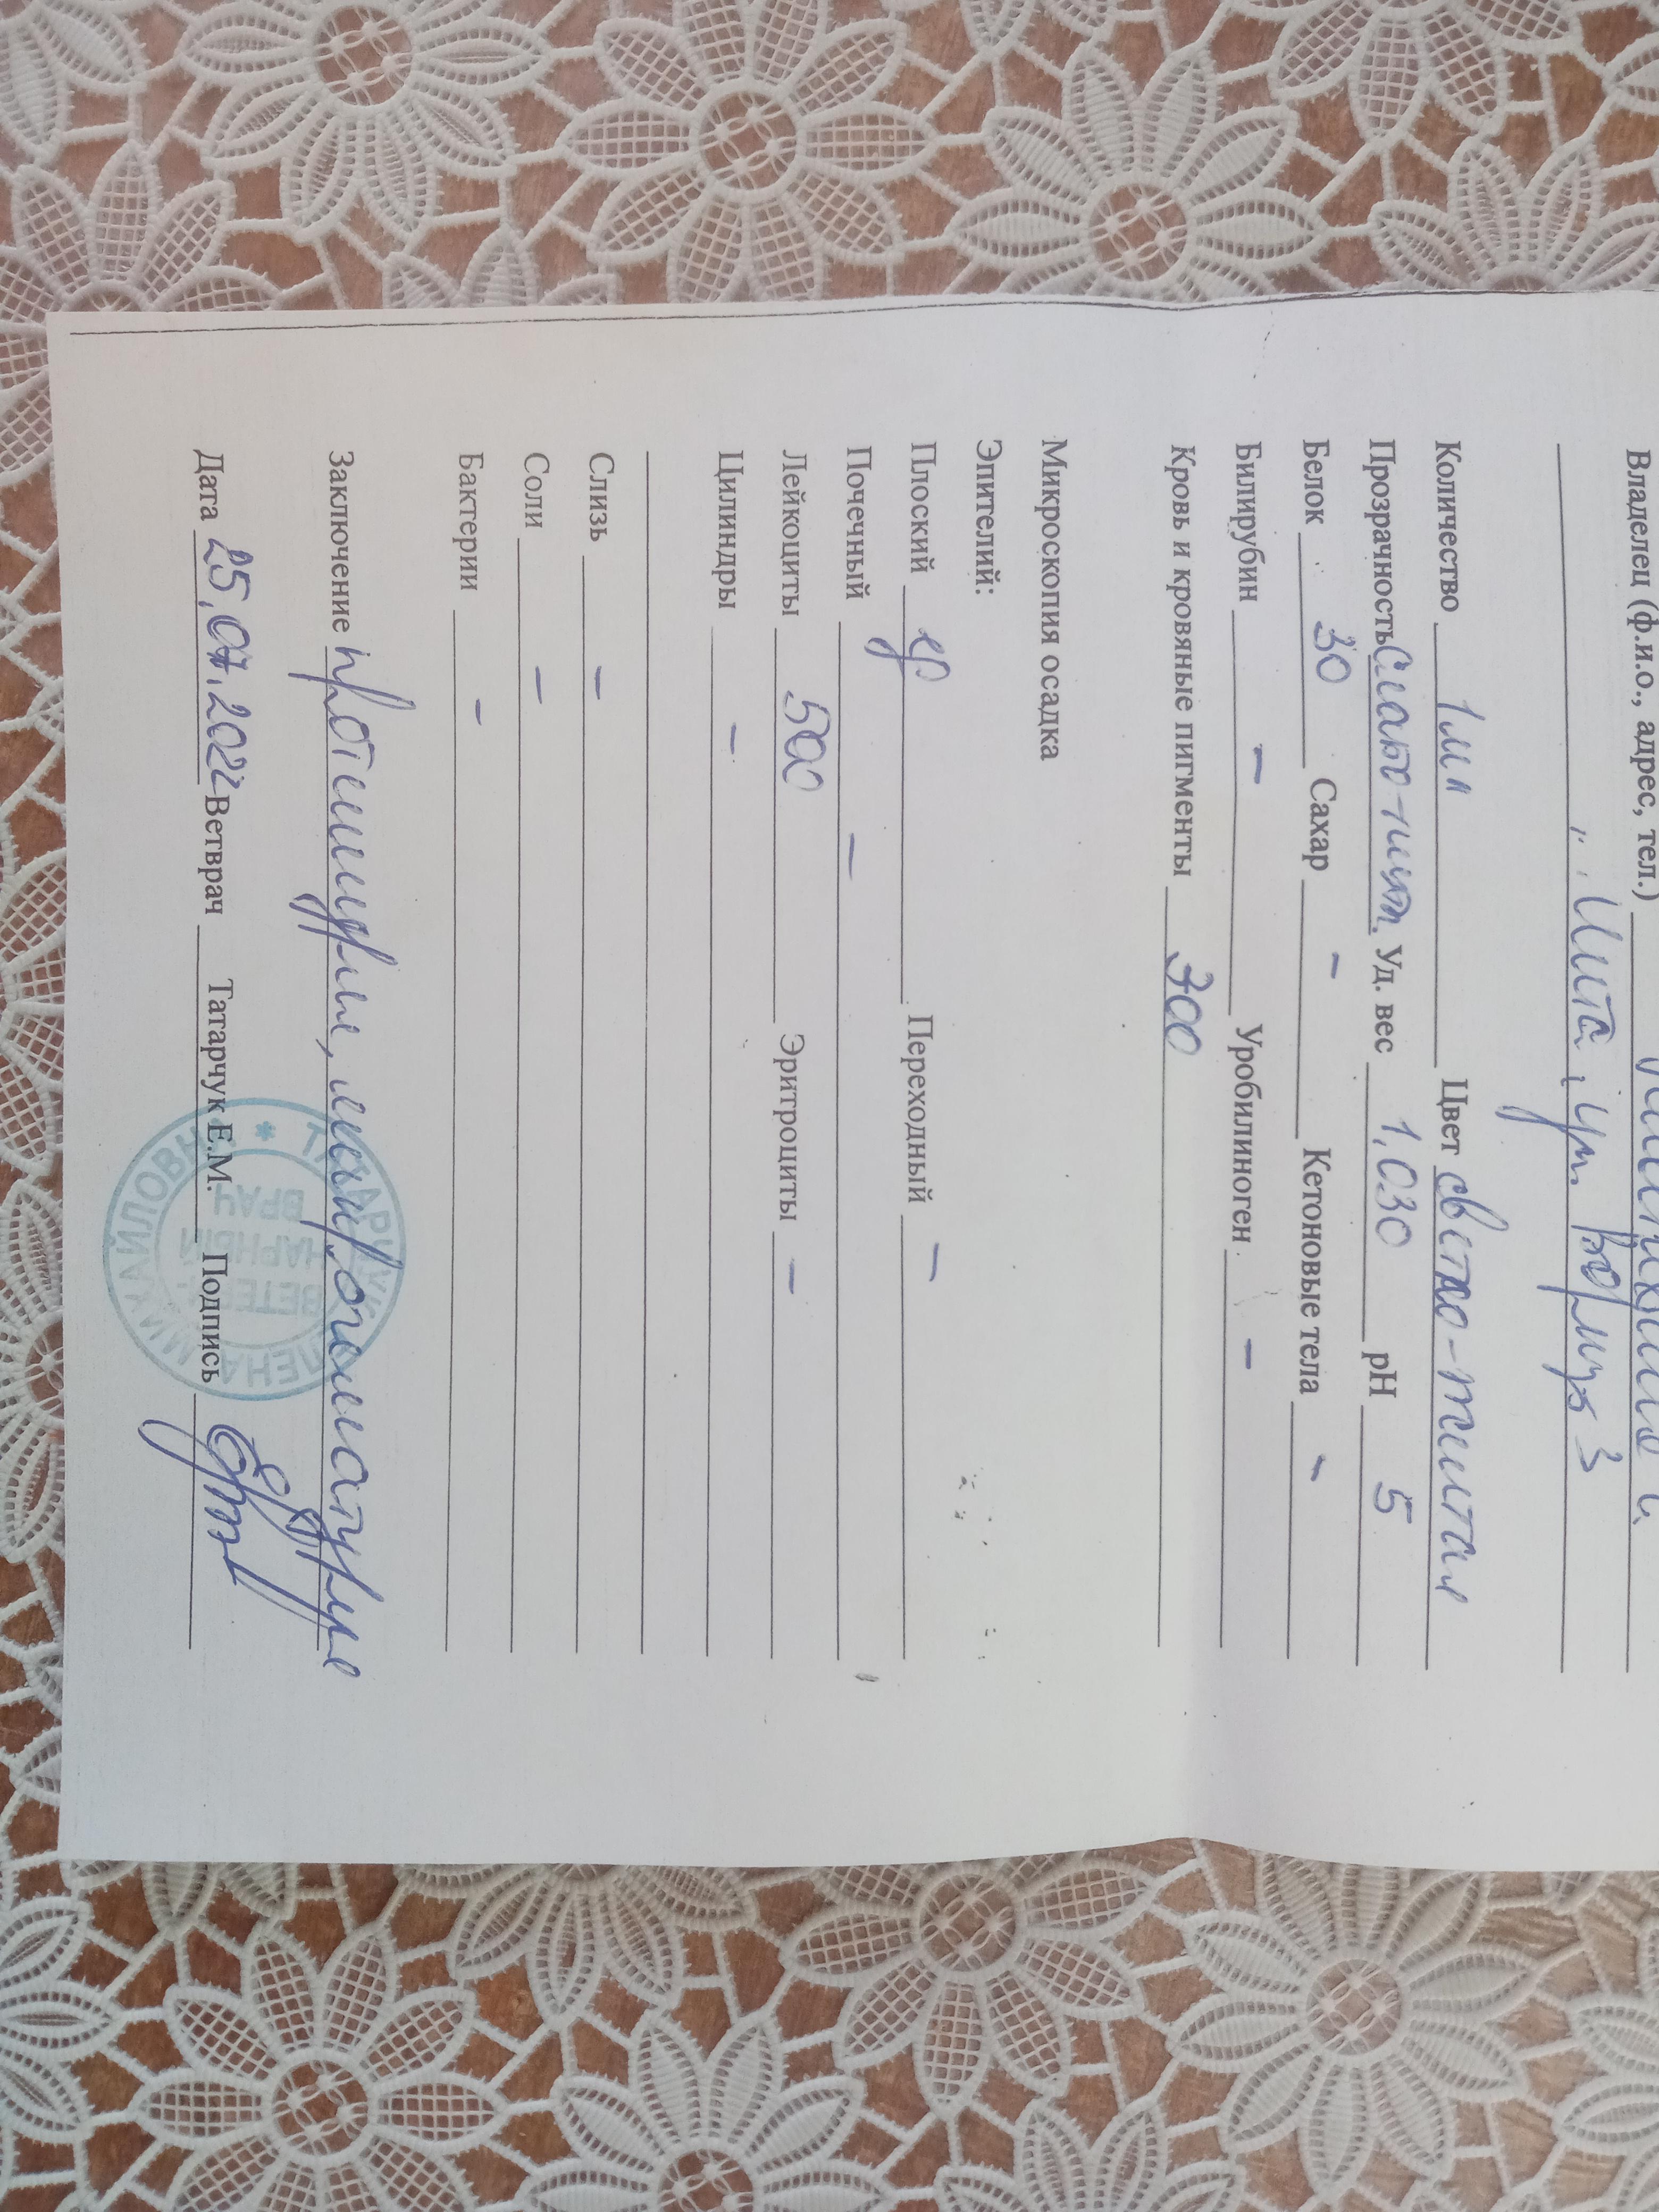 Владелец (ф.и.о., адрес, тел.)
Количество 1мл Цвет светло-желтая
Прозрачность Уд. вес 1,030 pH 5
Белок 30 Сахар – Кетоновые тела –
Билирубин – Уробилиноген –
Кровь и кровяные пигменты 300
Микроскопия осадка
Эпителий:
Плоский ер Переходный –
Почечный –
Лейкоциты 500 Эритроциты –
Цилиндры –
Слизь –
Соли –
Бактерии –
Заключение протеинурия, микрогематурия
Дата 25.07.2022 Ветврач Татарчук Е.М. Подпись
ТАТАРЧУК ЕЛЕНА МИХАЙЛОВНА *
ВЕТЕРИНАРНЫЙ
ВРАЧ